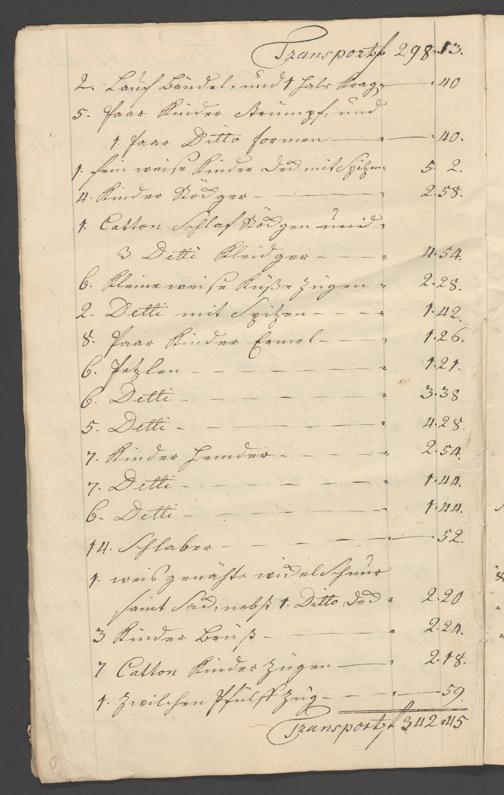 Transport f 298.13.
2. Lauf Bändel, und 1 hals Krag — " 40
5. Paar Kinder Strümpf, und
1 Paar Ditto formen — " 40.
1. fein weise Kinder Deck mit Spitzen " 5. 2.
4. Kinder Röckger — " 2.58.
1. Catton Schlaf Röckgen und
3 Detti Kleidger — " 4.54.
6. Kleine weise Küße Zügen " 2.28.
2. Detti mit Spitzen — " 1.42.
8. Paar Kinder Ermel — " 1.26.
6. — " 1.21.
6. Detti — " 3.38
5. Detti — " 4.28.
7. Kinder Hemder — " 2.54.
7. Detti — " 1.44.
6. Detti — " 1.44.
14. Schlaber — " 52.
1. weis genähte widelschnur
samt Sack, nebst 1. Ditto Deck " 2.20
3 Kinder Brüst — " 2.24.
7 Catton Kinder Zügen — " 2.18.
1. Zwilchen Pfulff Züg — " 59.
Transport f 342.45